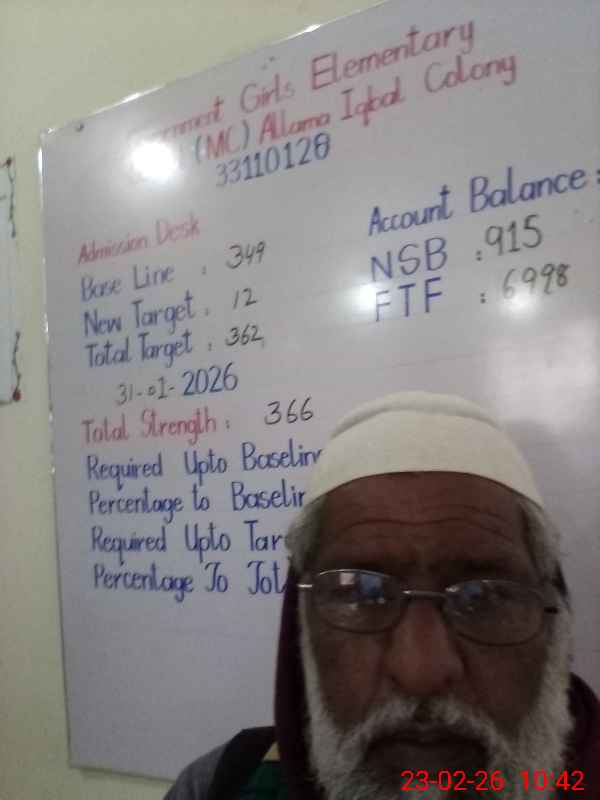 Girls Elementary
(MC) Allama Iqbal Colony
33110128
Admission Desk
Base Line : 349
New Target : 12
Total Target : 362
31-01-2026
Total Strength : 366
Required Upto Baselin
Percentage to Baselin
Required Upto Tar
Percentage To Tot
Account Balance :
NSB : 915
FTF : 6998
23-02-26 10:42